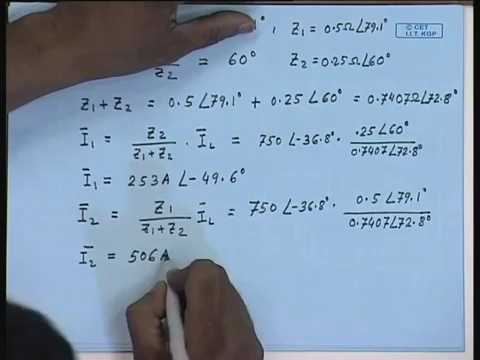 Z₁ = 0.5Ω∠79.1°
© CET
I.I.T. KGP
Z₂ = 60° Z₂ = 0.25Ω∠60°
Z₁ + Z₂ = 0.5∠79.1° + 0.25∠60° = 0.7407Ω∠72.8°
Ī₁ = Z₂/(Z₁+Z₂) · Ī_L = 750∠-36.8° · .25∠60°/0.7407∠72.8°
Ī₁ = 253A∠-49.6°
Ī₂ = Z₁/(Z₁+Z₂) Ī_L = 750∠-36.8° · 0.5∠79.1°/0.7407∠72.8°
Ī₂ = 506A